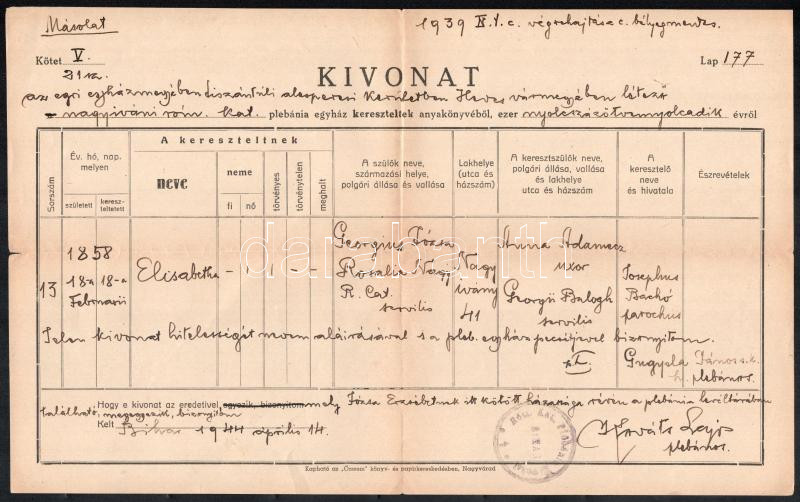 Másolat
1939 IV. t. c. végrehajtása c. bélyegmentes.
Kötet V. Lap 177
21 sz.
KIVONAT
az egri egyházmegyében tiszántúli alesperesi kerületben Heves vármegyében létező
nagyiváni róm. kat. plebánia egyház kereszteltek anyakönyvéből, ezer nyolcszázötvennyolcadik évről
Sorszám
Év. hó, nap, melyen
született
keresz-
teltetett
A kereszteltnek
neve
neme
fi nő
törvényes
törvénytelen
meghalt
A szülők neve,
származási helye,
polgári állása és vallása
Lakhelye
(utca és
házszám)
A keresztszülők neve,
polgári állása, vallása
és lakhelye
utca és házszám
A
keresztelő
neve
és hivatala
Észrevételek
13
1858
18-a 18-a
Februarii
Elisabetha
- 1 1 - -
Georgius Józsa
Rozalia Nagy
R. Cat.
servilis
Nagy
ivány
41
Anna Adamecz
uxor
Georgii Balogh
servilis
Josephus
Bachó
parochus
Jelen kivonat hitelességét nevem aláirásával s a pleb. egyház pecsétjével bizonyitom.
János s. k.
plebános.
Hogy e kivonat az eredetivel, egyezik, bizonyitom mely Józsa Erzsébetnek itt kötött házassága révén a plebánia levéltárában
található, megegyezik, bizonyitom
Kelt Bihar 1944 április 14.
Kováts Lajos
plebános.
Kapható az „Összem" könyv- és papirkereskedésben, Nagyvárad
darabanth